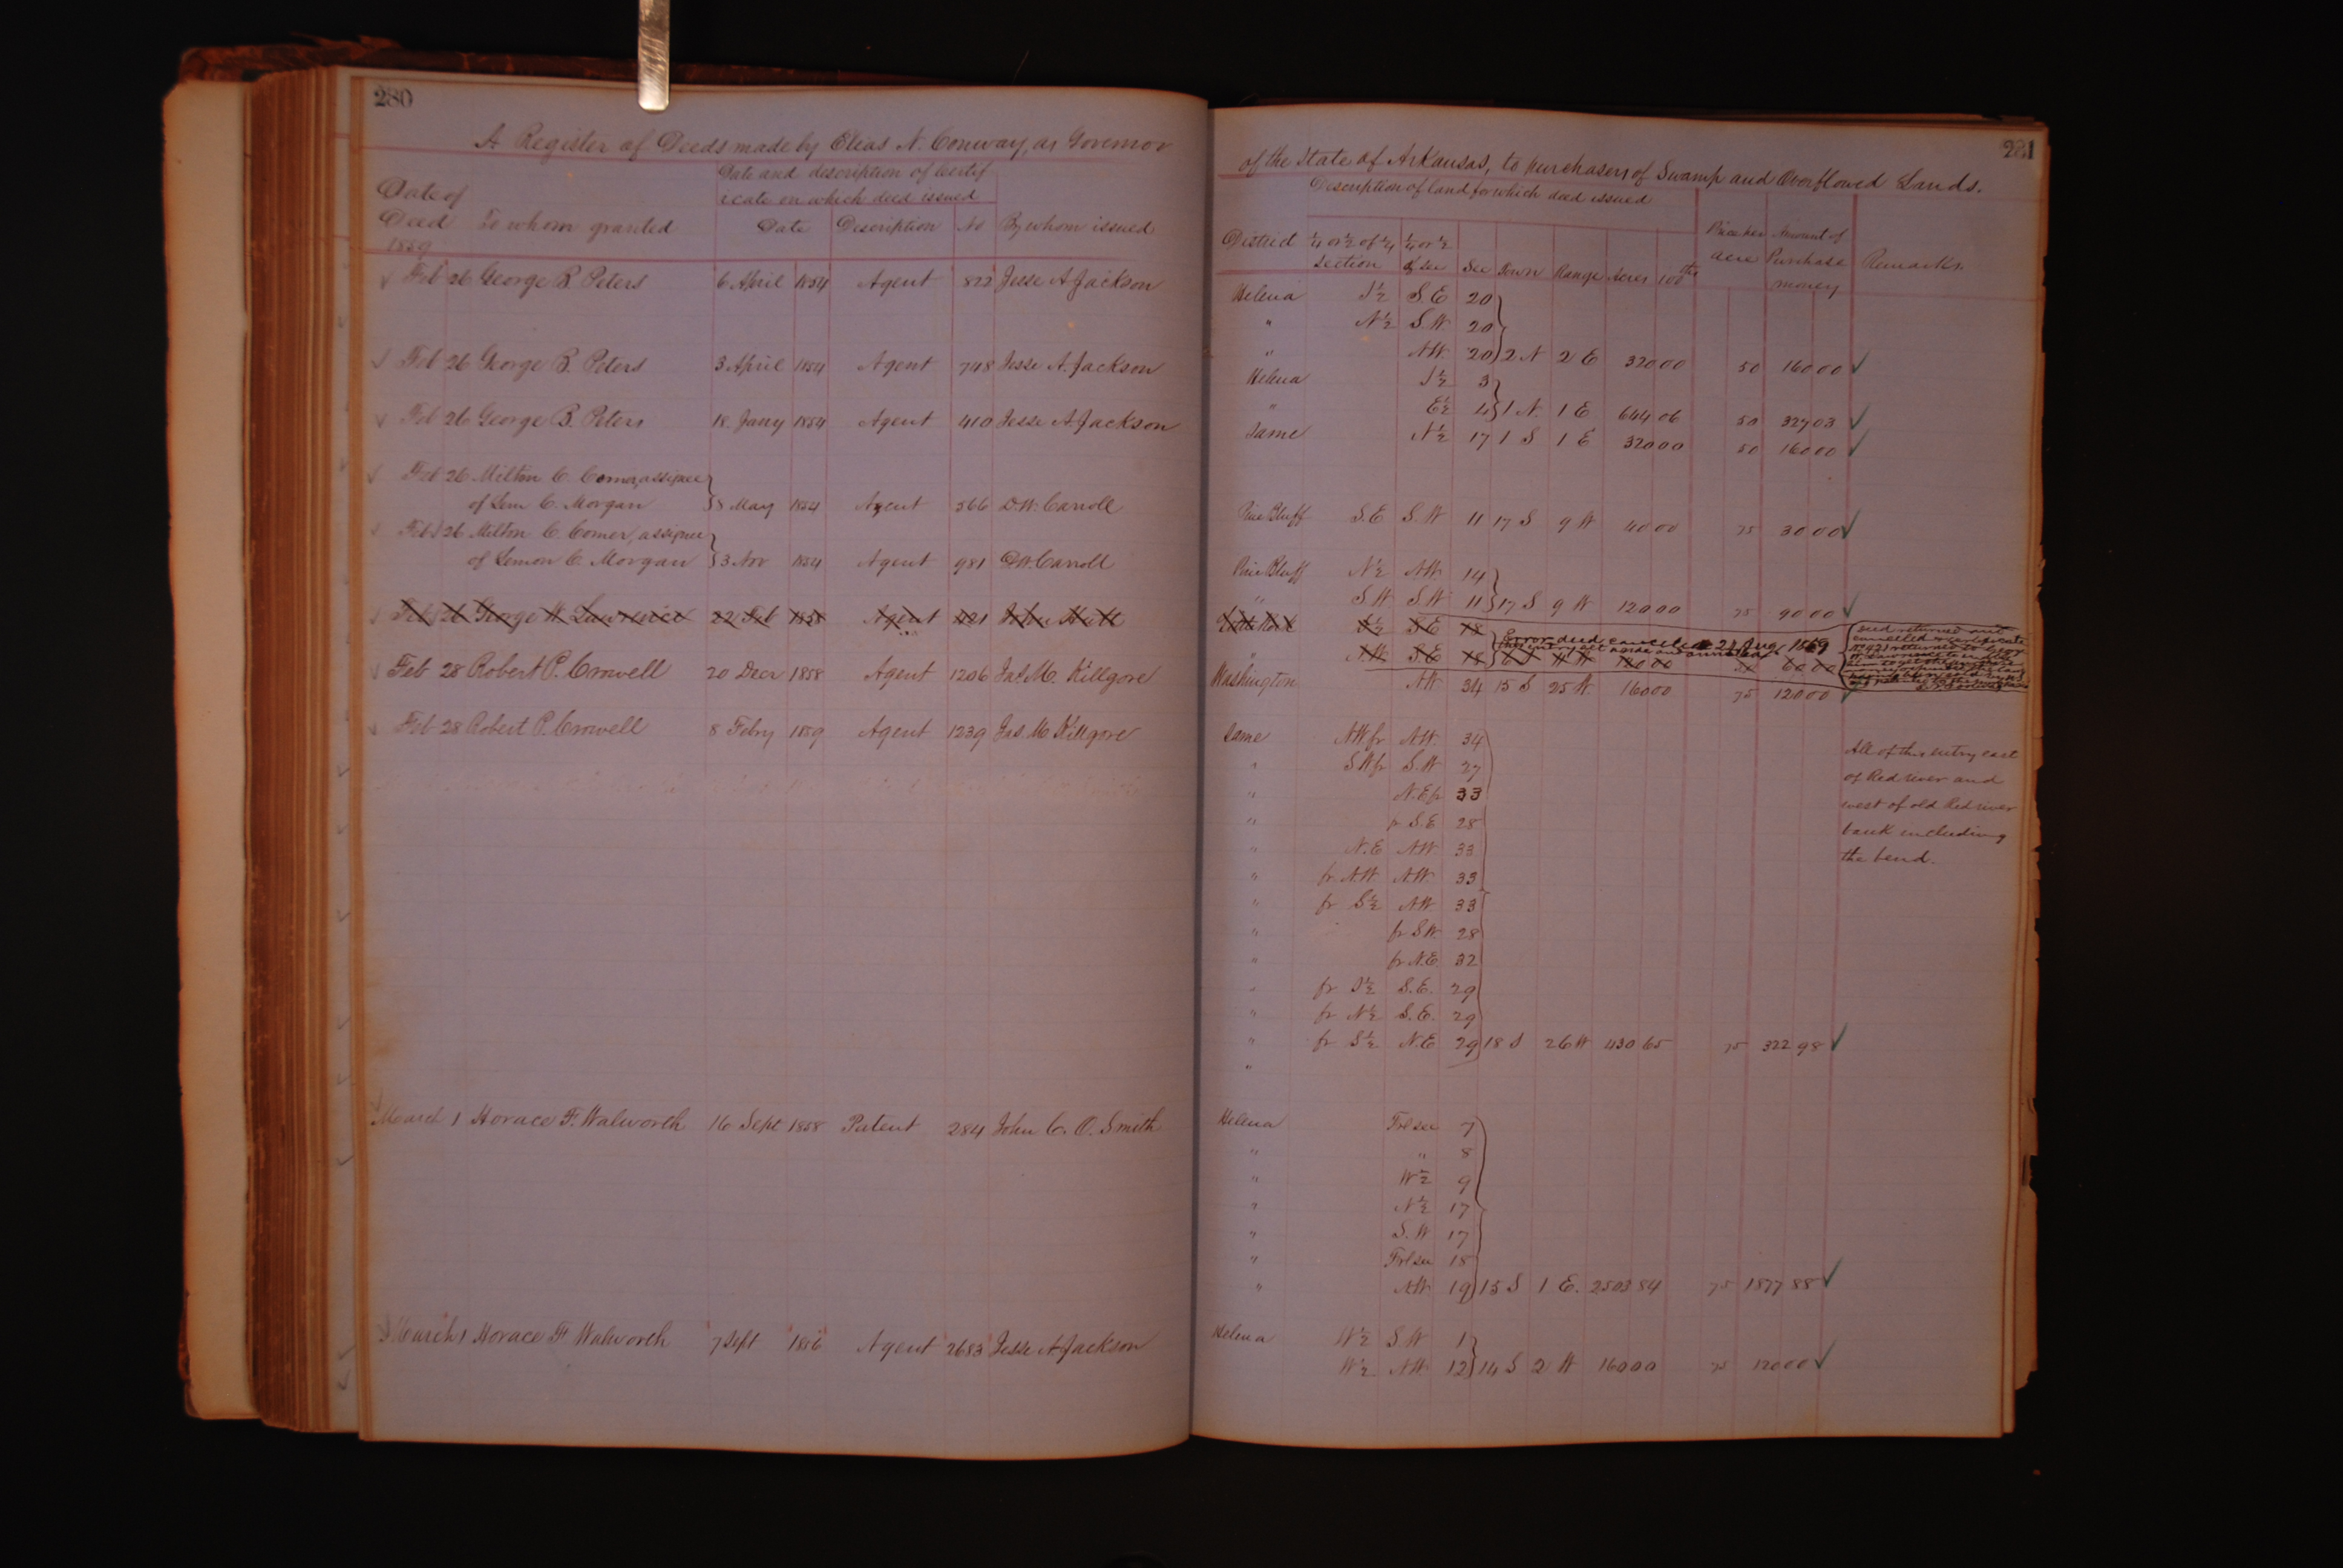 280
A Register of Deeds made by Elias N. Conway, as Governor
Date of Deed
To whom granted
Date and description of Certif
icate on which deed issued
Date Description No By whom issued
1859
Feb 26 George B. Peters 6 April 1854 Agent 822 Jesse A Jackson
Feb 26 George B. Peters 3 April 1854 Agent 748 Jesse A. Jackson
Feb 26 George B. Peters 18 Jany 1854 Agent 410 Jesse A Jackson
Feb 26 Milton C. Comer, assignee
of Lem C. Morgan } 8 May 1854 Agent 566 D.W. Carroll
Feb 26 Milton C. Comer, assignee
of Lemon C. Morgan } 3 Nov 1854 Agent 981 D.W. Carroll
Feb 26 George W. Lawrence 22 Feb 1858 Agent 421 John Hutt
Feb 28 Robert P. Crowell 20 Decr 1858 Agent 1206 Jas. M. Killgore
Feb 28 Robert P. Crowell 8 Febry 1859 Agent 1239 Jas. M Killgore
March 1 Horace F. Walworth 16 Sept 1858 Patent 284 John C. O. Smith
March 1 Horace F Walworth 7 Sept 1856 Agent 2683 Jesse A Jackson
281
of the State of Arkansas, to purchasers of Swamp and Overflowed Lands.
Description of land for which deed issued
District ¼ or ½ of ¼ section ¼ or ½ of sec Sec Town Range Acres 100ths Price per acre Amount of Purchase money Remarks.
Helena S½ S.E 20
" N½ S.W. 20
" N.W. 20 } 2 N 2 E 320 00 50 160 00 ✓
Helena S½ 3
" E½ 4 } 1 N. 1 E 644 06 50 327 03 ✓
Same N½ 17 1 S 1 E 320 00 50 160 00 ✓
Pine Bluff S.E S.W 11 17 S 9 W 40 00 75 30 00 ✓
Pine Bluff N½ N.W. 14
" S.W S.W 11 } 17 S 9 W 120 00 75 90 00 ✓
Little Rock S½ S E 18
" N.W. S.E 18 6 S 11 W 120 00 60 00
Error deed cancelled 29 Aug 1859
Washington N.W 34 15 S 25 W 160 00 75 120 00 ✓
Same N.W fr N.W. 34
" S W fr S.W 27
" N.E fr 33
" fr S.E 28
" N.E N.W. 33
" fr N.W. N.W. 33
" fr S½ N.W 33
" fr S.W 28
" fr N.E. 32
" fr S½ S.E. 29
" fr N½ S.E. 29
" fr S½ N.E 29 18 S 26 W 430 65 75 322 98 ✓
"
All of this entry east
of Red river and
west of old Red river
bank including
the bend.
Helena Frl sec 7
" " 8
" W½ 9
" N½ 17
" S.W 17
" Frl sec 18
" N.W. 19 15 S 1 E. 2503 84 75 1877 88 ✓
Helena W½ S W 1
W½ N.W. 12 } 14 S 2 W 160 00 75 120 00 ✓